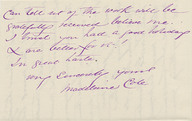 can tell us of the work will be
gratefully received believe me.
I trust you had a good holiday
& are better for it.
In great haste.
Very Sincerely yours
Madeleine Cole